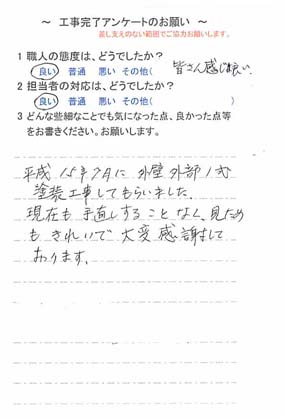 ～ 工事完了アンケートのお願い ～
差し支えのない範囲でご協力お願いします。
1 職人の態度は、どうでしたか?
良い 普通 悪い その他( 皆さん感じ良い。
2 担当者の対応は、どうでしたか?
良い 普通 悪い その他( )
3 どんな些細なことでも気になった点、良かった点等
をお書きください。お願いします。
平成15年9月に外壁外部1式
塗装工事してもらいました。
現在も手直しすることなく、見ため
もきれいで大変感謝して
おります。